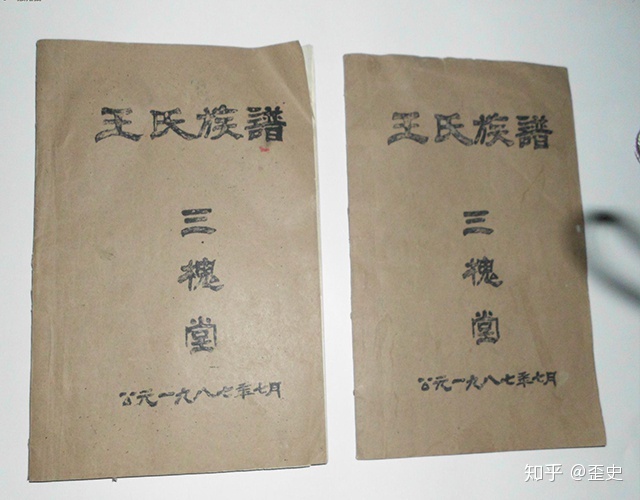 王氏族譜
三
槐
堂
公元一九八七年七月
王氏族譜
三
槐
堂
公元一九八七年七月
知乎 @歪史